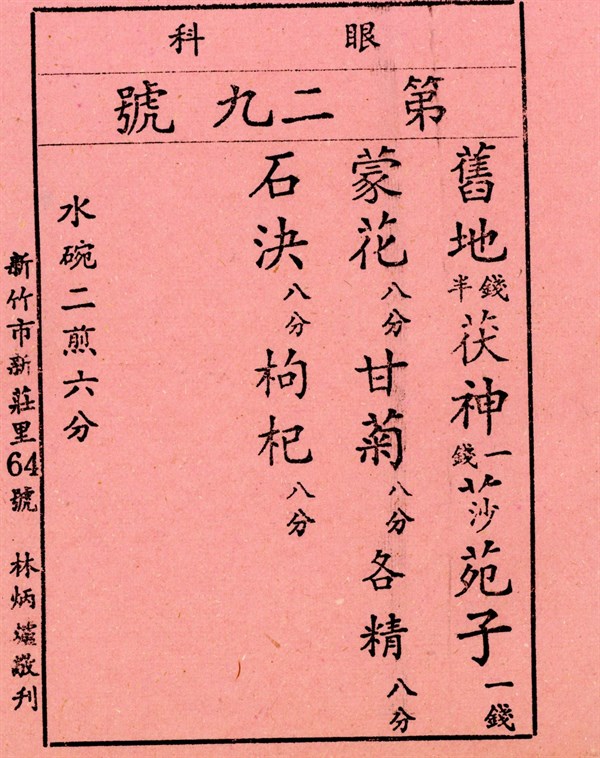 眼科
第二九號
舊地錢半茯神一錢莎苑子一錢
蒙花八分甘菊八分各精八分
石決八分枸杞八分
水碗二煎六分
新竹市新莊里64號 林炳敬刊